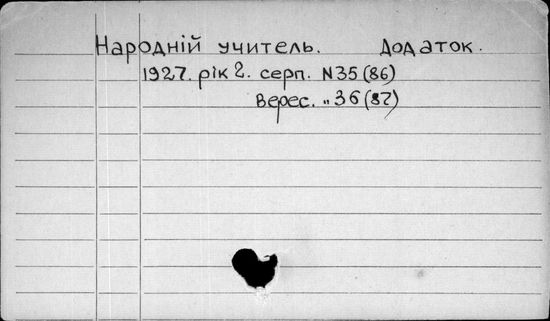 Народній учитель. Додаток.
1927. рік 2. серп. N35(86)
Верес. „ 36(87)